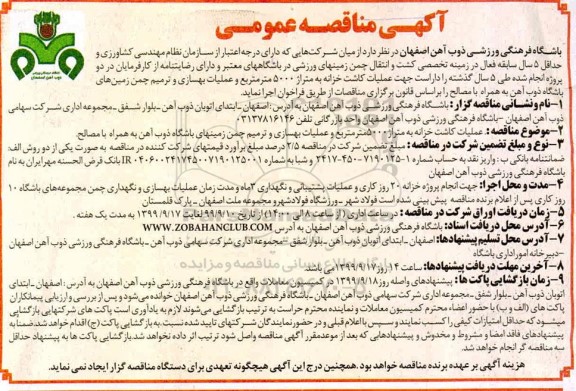 آگهی مناقصه عمومی
باشگاه فرهنگی ورزشی ذوب آهن اصفهان در نظر دارد از میان شرکت‌هایی که دارای درجه اعتبار از سازمان نظام مهندسی کشاورزی و
حداقل ۵ سال سابقه فعال در زمینه تخصصی کشت و انتقال چمن زمینهای ورزشی در باشگاههای معتبر و دارای رضایتنامه از کارفرمایان در دو
پروژه انجام شده طی ۵ سال گذشته را داراست جهت عملیات کاشت خزانه به متراژ ۵۰۰۰ مترمربع و عملیات بهسازی و ترمیم چمن زمین‌های
باشگاه ذوب آهن به همراه با مصالح را براساس قانون برگزاری مناقصات از طریق فراخوان اجرا نماید.
۱-نام و نشانی مناقصه گزار: باشگاه فرهنگی ورزشی ذوب آهن اصفهان به آدرس: اصفهان-ابتدای اتوبان ذوب آهن-بلوار شفق-مجموعه اداری شرکت سهامی
ذوب آهن اصفهان-باشگاه فرهنگی ورزشی ذوب آهن اصفهان واحد بازرگانی تلفن ۰۳۱۳۷۸۱۶۱۴۶
۲-موضوع مناقصه: عملیات کاشت خزانه به متراژ ۵۰۰۰مترمربع و عملیات بهسازی و ترمیم چمن زمینهای باشگاه ذوب آهن به همراه با مصالح.
۳-نوع و مبلغ تضمین شرکت در مناقصه: مبلغ تضمین شرکت در مناقصه ۲/۵ درصد مبلغ برآورد قیمتهای شرکت کننده در مناقصه به صورت یکی از دو روش الف:
ضمانتنامه بانکی ب: واریز نقد به حساب شماره ۱-۷۱۹۰۱۲۵-۴۵۰-۲۴۱۷ و شبا به شماره IR۰۴۰۶۰۰۲۴۱۷۴۵۰۰۷۱۹۰۱۲۵۰۰۱ بانک قرض الحسنه مهر ایران به نام
باشگاه فرهنگی ورزشی ذوب آهن اصفهان
۴-مدت و محل اجرا: جهت انجام پروژه خزانه ۲۰ روز کاری و عملیات پشتیبانی و نگهداری ۲ماه و مدت زمان عملیات بهسازی و نگهداری چمن مجموعه‌های باشگاه ۱۰
روز کاری پس از اعلام برنده مناقصه پیش بینی شده است فولاد شهر-ورزشگاه فولادشهر و مجموعه ملت اصفهان-پارک قلمستان
۵-زمان دریافت اوراق شرکت در مناقصه: در ساعت اداری (از ساعت ۸ الی ۱۴:۰۰) از تاریخ ۹۹/۹/۱۰ لغایت ۱۳۹۹/۹/۱۷ به مدت یک هفته.
۶-آدرس محل دریافت اسناد: باشگاه فرهنگی ورزشی ذوب آهن اصفهان به آدرس WWW.ZOBAHANCLUB.COM
۷-آدرس محل تسلیم پیشنهادها: اصفهان-ابتدای اتوبان ذوب آهن-بلوار شفق-مجموعه اداری شرکت سهامی ذوب آهن-باشگاه فرهنگی ورزشی ذوب آهن اصفهان
-دبیرخانه امور اداری باشگاه
۸-آخرین مهلت دریافت پیشنهادها: ساعت ۱۴ روز ۱۳۹۹/۹/۱۷ می باشد.
۹-زمان بازگشایی پاکت ها: پیشنهادهای واصله روز ۱۳۹۹/۹/۱۸ در کمیسیون معاملات واقع در باشگاه فرهنگی ورزشی ذوب آهن اصفهان به آدرس: اصفهان-ابتدای
اتوبان ذوب آهن-بلوار شفق-مجموعه اداری شرکت سهامی ذوب آهن اصفهان-باشگاه فرهنگی ورزشی ذوب آهن اصفهان خوانده می‌شود و پس از بررسی و ارزیابی پیمانکاران
پاکت های (الف و ب) با حضور اعضاء محترم کمیسیون معاملات و نماینده محترم حراست به ترتیب بازگشایی می‌شوند لازم به یادآوری است پاکت های شرکتهایی بازگشایی
میشود که حداقل امتیازات کیفی را کسب نمایند و سپس با اعلام قبلی و در حضور نمایندگان شرکتهای تایید شده نسبت به بازگشایی پاکت (ج) اقدام خواهد شد، ضمنا به
پیشنهادهای فاقد امضا و مشروط و مخدوش و پیشنهادهایی که بعد از موعد مقرر آگهی مناقصه واصل شود ترتیب اثر داده نخواهد شد. بازگشایی پاکت ها به پیشنهاد حداقل
سه مناقصه گر انجام خواهد شد.
هزینه آگهی بر عهده برنده مناقصه خواهد بود. همچنین درج این آگهی هیچگونه تعهدی برای دستگاه مناقصه گزار ایجاد نمی نماید.